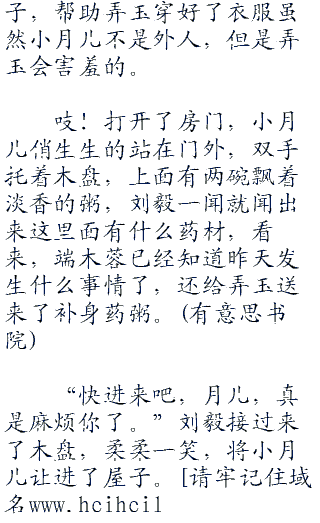 子，帮助弄玉穿好了衣服虽
然小月儿不是外人，但是弄
玉会害羞的。
吱！打开了房门，小月
儿俏生生的站在门外，双手
托着木盘，上面有两碗飘着
淡香的粥，刘毅一闻就闻出
来这里面有什么药材，看
来，端木蓉已经知道昨天发
生什么事情了，还给弄玉送
来了补身药粥。(有意思书
院)
“快进来吧，月儿，真
是麻烦你了。”刘毅接过来
了木盘，柔柔一笑，将小月
儿让进了屋子。[请牢记住域
名www.hcihcil